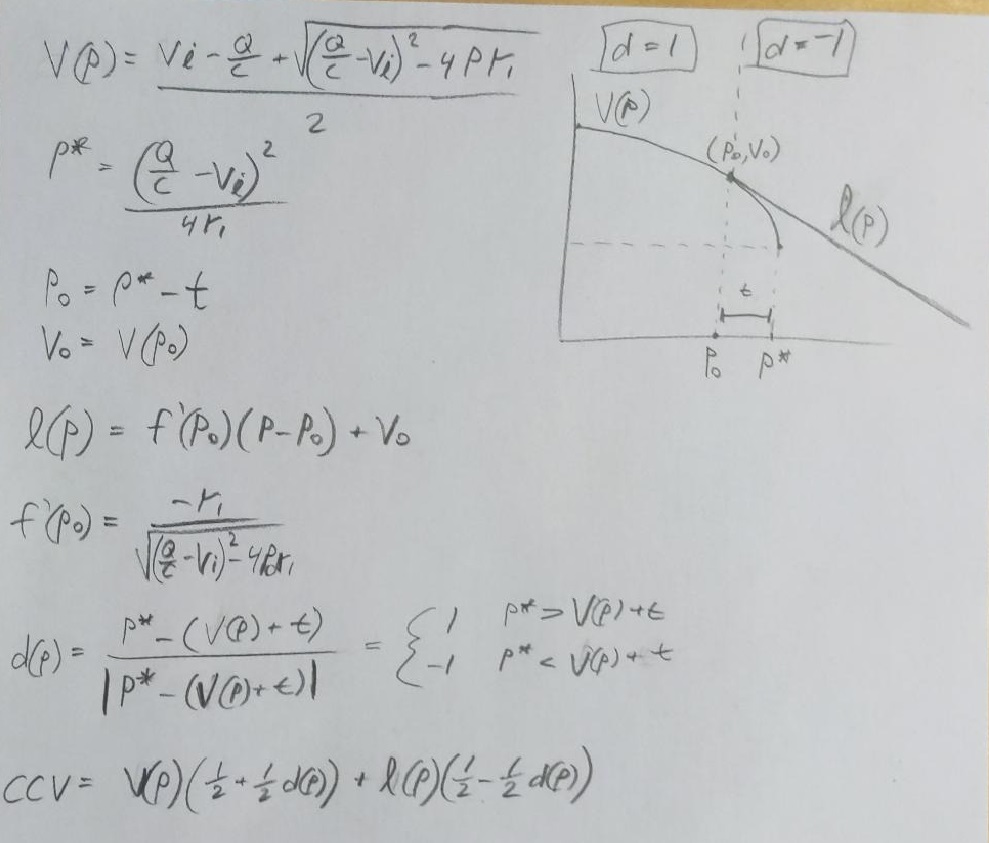 V(p) = (Vi - Q/C + √((Q/C - Vi)² - 4Pr₁)) / 2
P* = (Q/C - Vi)² / 4r₁
P₀ = P* - t
V₀ = V(P₀)
l(p) = f'(P₀)(P-P₀) + V₀
f'(P₀) = -r₁ / √((Q/C - Vi)² - 4P₀r₁)
d(p) = (P* - (V(p) + t)) / |P* - (V(p) + t)| = { 1 P* > V(p) + t
-1 P* < V(p) + t
CCV = V(p)(1/2 + 1/2 d(p)) + l(p)(1/2 - 1/2 d(p))
d = 1
d = -1
V(p)
(P₀,V₀)
l(p)
t
P₀ P*